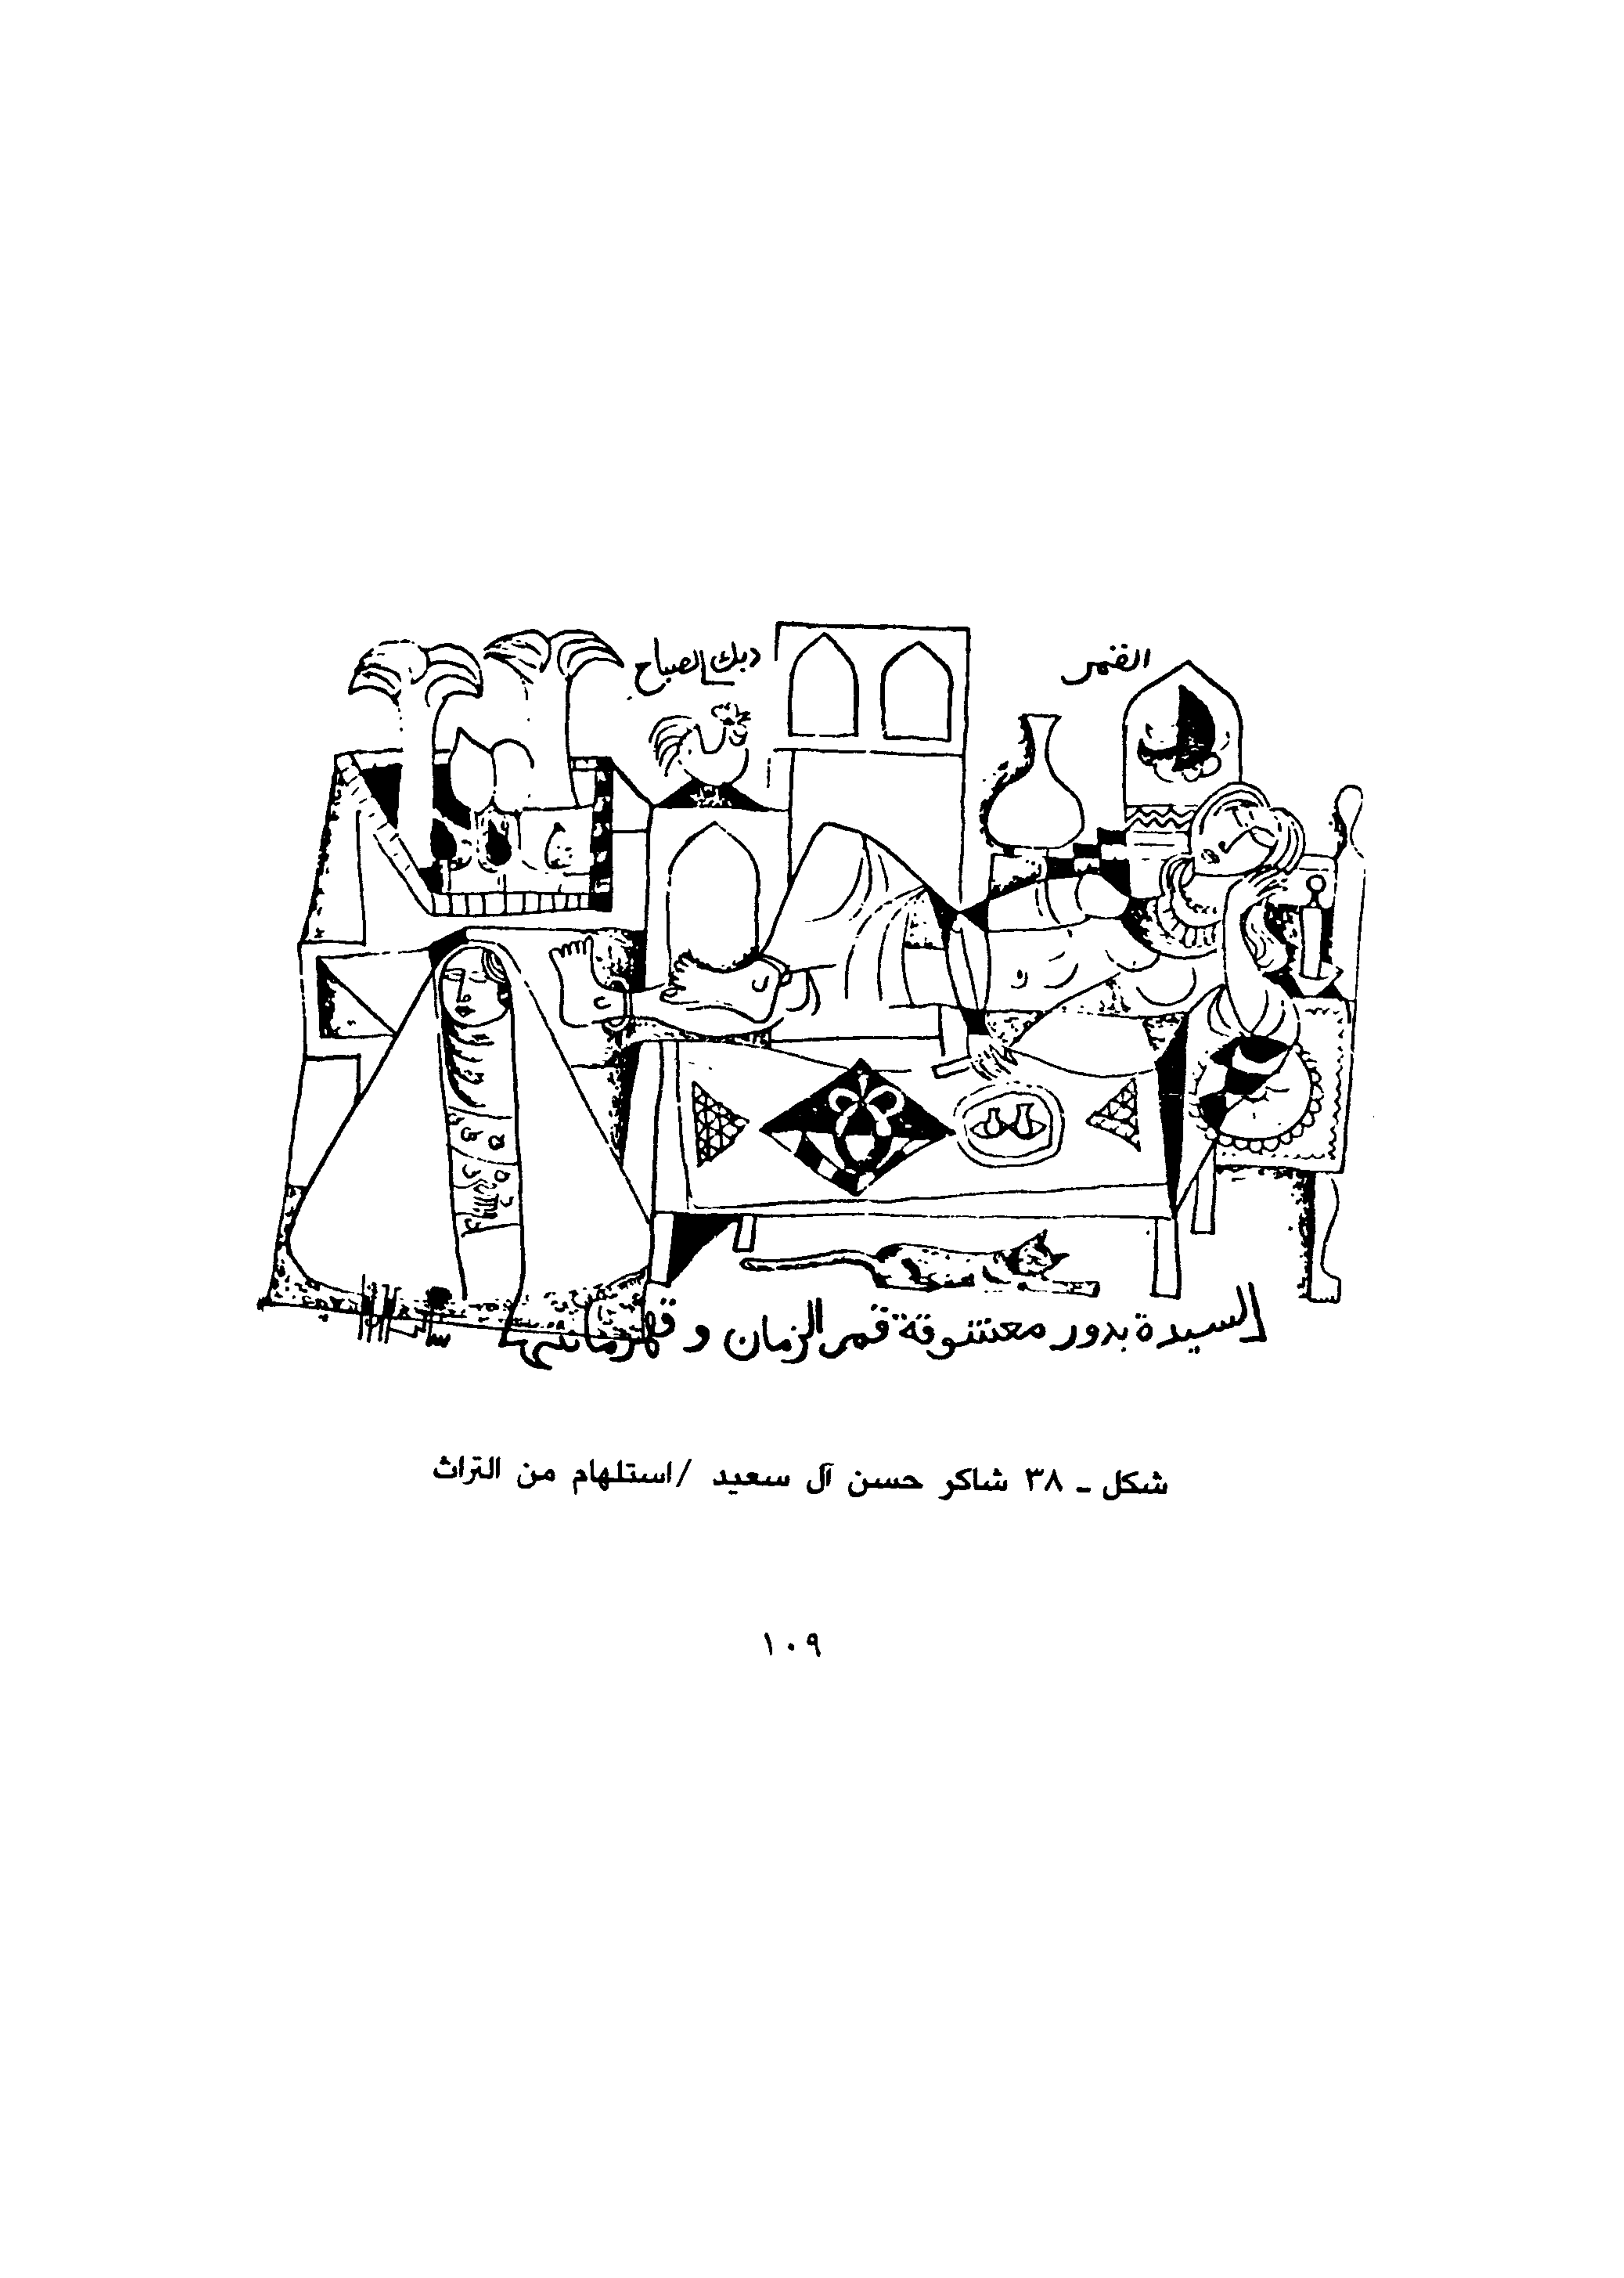 القمر
ديك الصباح
السيدة بدور معشوقة قمر الزمان و قهرمانتها
شكل ـ ٣٨ شاكر حسن آل سعيد /استلهام من التراث
١٠٩